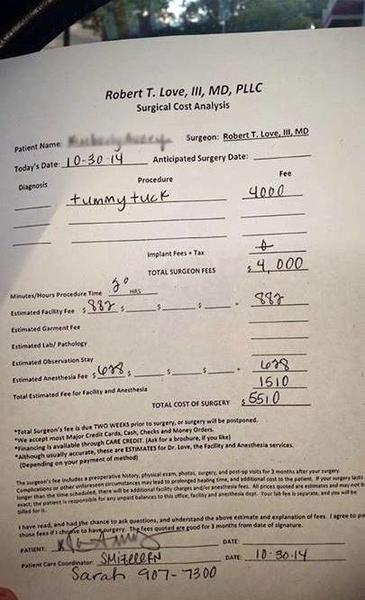 Robert T. Love, III, MD, PLLC
Surgical Cost Analysis
Patient Name: Surgeon: Robert T. Love, III, MD
Today's Date: 10-30-14 Anticipated Surgery Date:
Diagnosis Procedure Fee
tummy tuck 4000
Implant Fees + Tax
TOTAL SURGEON FEES $ 4,000
Minutes/Hours Procedure Time HRS
Estimated Facility Fee $ 882 $ $ $ = 882
Estimated Garment Fee
Estimated Lab/ Pathology
Estimated Observation Stay
Estimated Anesthesia Fee $ 628 $ $ $ = 628
Total Estimated Fee for Facility and Anesthesia 1510
TOTAL COST OF SURGERY $ 5510
*Total Surgeon's fee is due TWO WEEKS prior to surgery, or surgery will be postponed.
*We accept most Major Credit Cards, Cash, Checks and Money Orders.
*Financing is available through CARE CREDIT. (Ask for a brochure, if you like)
*Although usually accurate, these are ESTIMATES for Dr. Love, the Facility and Anesthesia services.
(Depending on your payment of method)
The surgeon's fee includes a preoperative history, physical exam, photos, surgery, and post-op visits for 3 months after your surgery.
Complications or other unforeseen circumstances may lead to prolonged healing time, and additional cost to the patient. If your surgery lasts
longer than the time scheduled, there will be additional facility charges and/or anesthesia fees. All prices quoted are estimates and may not b
exact, the patient is responsible for any unpaid balances to this office, facility and anesthesia dept. Your lab fee is separate, and you will be
billed for it.
I have read, and had the chance to ask questions, and understand the above estimate and explanation of fees. I agree to pa
those fees if I choose to have surgery. The fees quoted are good for 3 months from date of signature.
PATIENT: DATE:
Patient Care Coordinator: DATE: 10-30-14
Sarah 907-7300